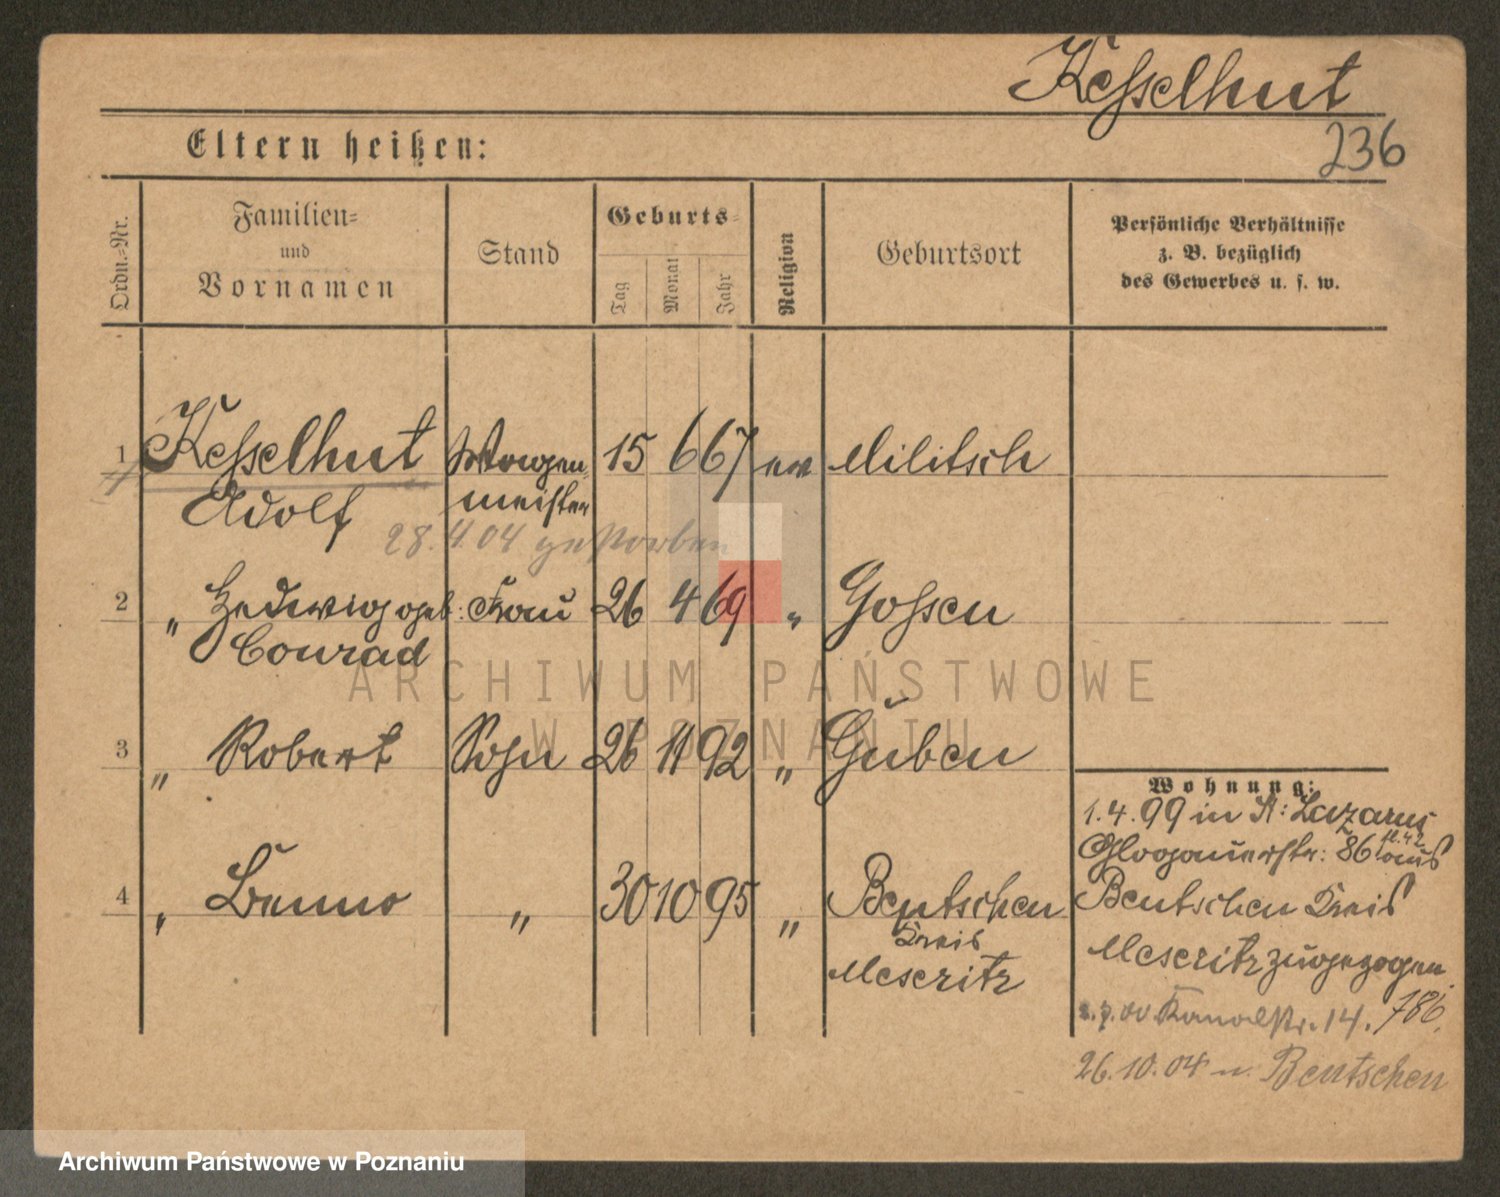 Kesselhut
236
Eltern heißen:
Ordn.-Nr.
Familien-
und
Vornamen
Stand
Geburts-
Tag
Monat
Jahr
Religion
Geburtsort
Persönliche Verhältnisse
z. B. bezüglich
des Gewerbes u. s. w.
1 Kesselhut Wagen- 15 6 67 ev Militsch
Adolf meister
28.4.04 gestorben
2 " Hedwig geb: Frau 26 4 69 " Gossen
Conrad
3 " Robert Sohn 26 11 92 " Guben
4 " Benno " 30 10 95 " Bentschen
Kreis
Meseritz
Wohnung:
1.4.99 in St: Lazarus
Glogauerstr: 86 aus
Bentschen Kreis
Meseritz zugezogen
7.00 Kanalstr. 14. 786.
26.10.04 n. Bentschen
ARCHIWUM PAŃSTWOWE
W POZNANIU
Archiwum Państwowe w Poznaniu